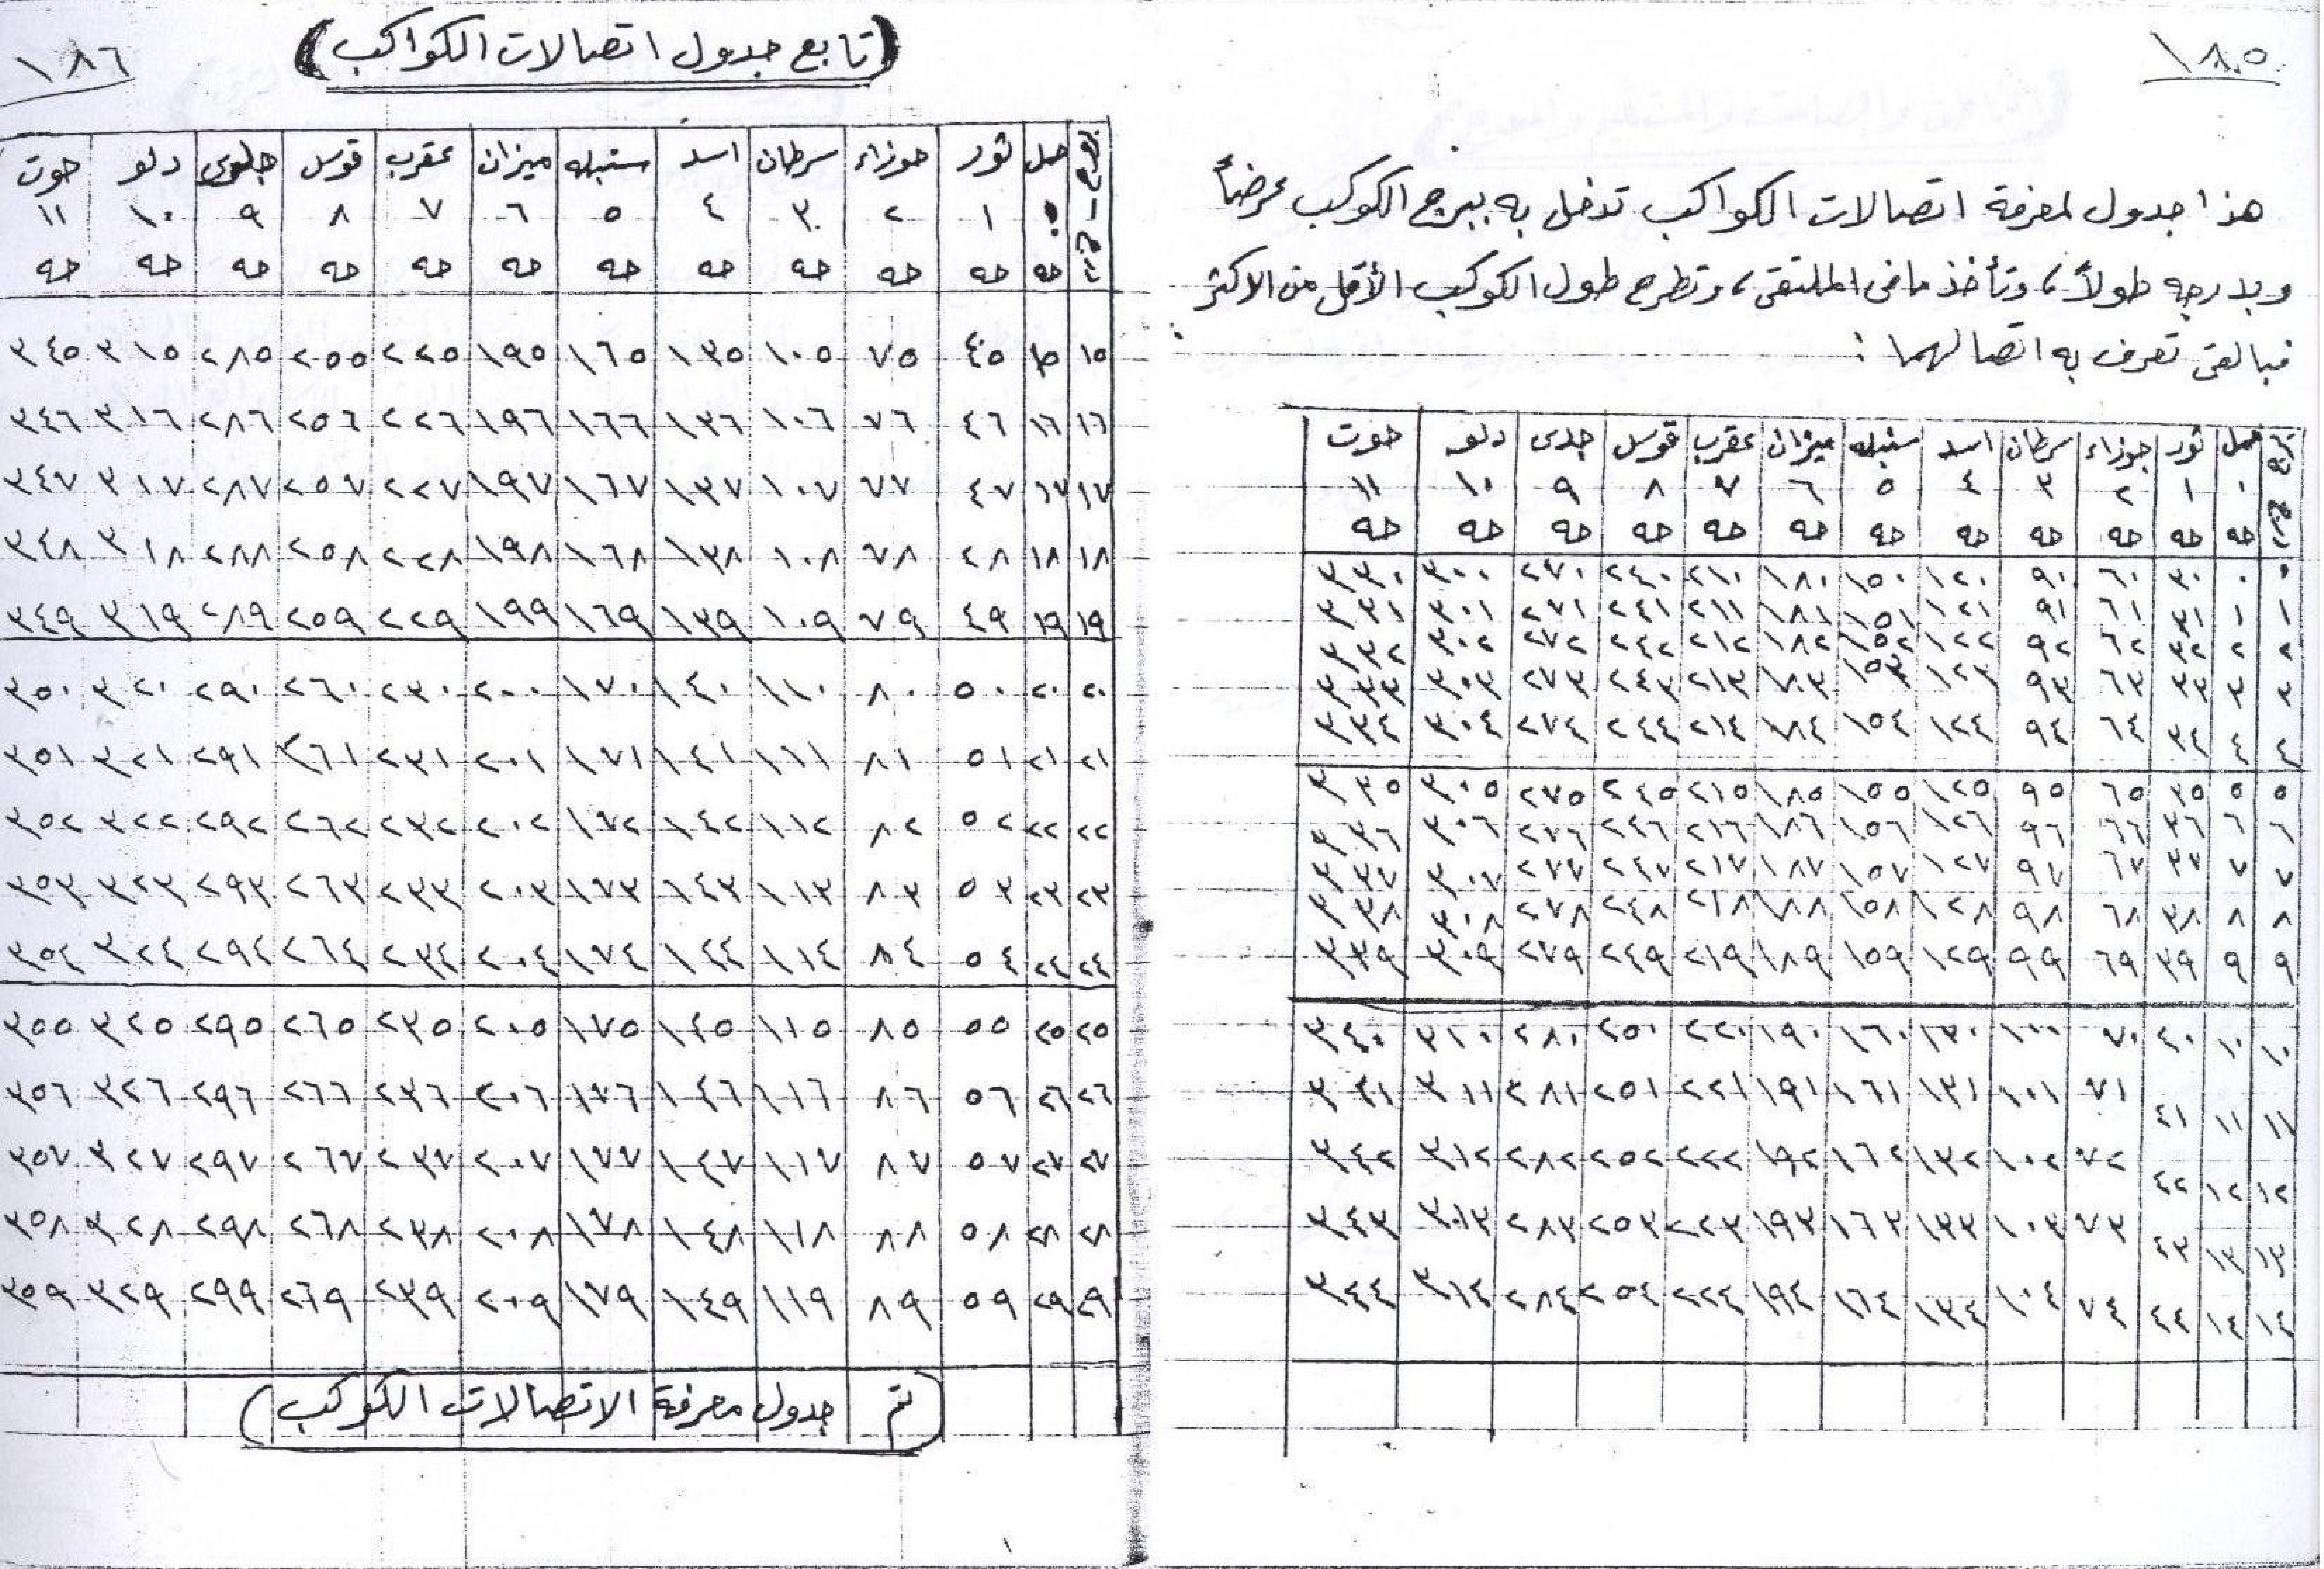 ١٨٥
هذا جدول لمعرفة اتصالات الكواكب تدخل به ببرج الكوكب عرضاً
وبدرجه طولاً، وتأخذ ما فى الملتقى، وتطرح طول الكوكب الأقل من الاكثر
فبالقى تعرف به اتصالهما :
حمل ثور جوزاء سرطان اسد سنبله ميزان عقرب قوس جدى دلو حوت
٠ ١ ٢ ٣ ٤ ٥ ٦ ٧ ٨ ٩ ١٠ ١١
حه حه حه حه حه حه حه حه حه حه حه حه
٠ ٠ ٣٠ ٦٠ ٩٠ ١٢٠ ١٥٠ ١٨٠ ٢١٠ ٢٤٠ ٢٧٠ ٣٠٠ ٣٣٠
١ ١ ٣١ ٦١ ٩١ ١٢١ ١٥١ ١٨١ ٢١١ ٢٤١ ٢٧١ ٣٠١ ٣٣١
٢ ٢ ٣٢ ٦٢ ٩٢ ١٢٢ ١٥٢ ١٨٢ ٢١٢ ٢٤٢ ٢٧٢ ٣٠٢ ٣٣٢
٣ ٣ ٣٣ ٦٣ ٩٣ ١٢٣ ١٥٣ ١٨٣ ٢١٣ ٢٤٣ ٢٧٣ ٣٠٣ ٣٣٣
٤ ٤ ٣٤ ٦٤ ٩٤ ١٢٤ ١٥٤ ١٨٤ ٢١٤ ٢٤٤ ٢٧٤ ٣٠٤ ٣٣٤
٥ ٥ ٣٥ ٦٥ ٩٥ ١٢٥ ١٥٥ ١٨٥ ٢١٥ ٢٤٥ ٢٧٥ ٣٠٥ ٣٣٥
٦ ٦ ٣٦ ٦٦ ٩٦ ١٢٦ ١٥٦ ١٨٦ ٢١٦ ٢٤٦ ٢٧٦ ٣٠٦ ٣٣٦
٧ ٧ ٣٧ ٦٧ ٩٧ ١٢٧ ١٥٧ ١٨٧ ٢١٧ ٢٤٧ ٢٧٧ ٣٠٧ ٣٣٧
٨ ٨ ٣٨ ٦٨ ٩٨ ١٢٨ ١٥٨ ١٨٨ ٢١٨ ٢٤٨ ٢٧٨ ٣٠٨ ٣٣٨
٩ ٩ ٣٩ ٦٩ ٩٩ ١٢٩ ١٥٩ ١٨٩ ٢١٩ ٢٤٩ ٢٧٩ ٣٠٩ ٣٣٩
١٠ ١٠ ٤٠ ٧٠ ١٠٠ ١٣٠ ١٦٠ ١٩٠ ٢٢٠ ٢٥٠ ٢٨٠ ٣١٠ ٣٤٠
١١ ١١ ٤١ ٧١ ١٠١ ١٣١ ١٦١ ١٩١ ٢٢١ ٢٥١ ٢٨١ ٣١١ ٣٤١
١٢ ١٢ ٤٢ ٧٢ ١٠٢ ١٣٢ ١٦٢ ١٩٢ ٢٢٢ ٢٥٢ ٢٨٢ ٣١٢ ٣٤٢
١٣ ١٣ ٤٣ ٧٣ ١٠٣ ١٣٣ ١٦٣ ١٩٣ ٢٢٣ ٢٥٣ ٢٨٣ ٣١٣ ٣٤٣
١٤ ١٤ ٤٤ ٧٤ ١٠٤ ١٣٤ ١٦٤ ١٩٤ ٢٢٤ ٢٥٤ ٢٨٤ ٣١٤ ٣٤٤
١٨٦
(تابع جدول اتصالات الكواكب)
حمل ثور جوزاء سرطان اسد سنبله ميزان عقرب قوس جدى دلو حوت
٠ ١ ٢ ٣ ٤ ٥ ٦ ٧ ٨ ٩ ١٠ ١١
حه حه حه حه حه حه حه حه حه حه حه حه
١٥ ١٥ ٤٥ ٧٥ ١٠٥ ١٣٥ ١٦٥ ١٩٥ ٢٢٥ ٢٥٥ ٢٨٥ ٣١٥ ٣٤٥
١٦ ١٦ ٤٦ ٧٦ ١٠٦ ١٣٦ ١٦٦ ١٩٦ ٢٢٦ ٢٥٦ ٢٨٦ ٣١٦ ٣٤٦
١٧ ١٧ ٤٧ ٧٧ ١٠٧ ١٣٧ ١٦٧ ١٩٧ ٢٢٧ ٢٥٧ ٢٨٧ ٣١٧ ٣٤٧
١٨ ١٨ ٤٨ ٧٨ ١٠٨ ١٣٨ ١٦٨ ١٩٨ ٢٢٨ ٢٥٨ ٢٨٨ ٣١٨ ٣٤٨
١٩ ١٩ ٤٩ ٧٩ ١٠٩ ١٣٩ ١٦٩ ١٩٩ ٢٢٩ ٢٥٩ ٢٨٩ ٣١٩ ٣٤٩
٢٠ ٢٠ ٥٠ ٨٠ ١١٠ ١٤٠ ١٧٠ ٢٠٠ ٢٣٠ ٢٦٠ ٢٩٠ ٣٢٠ ٣٥٠
٢١ ٢١ ٥١ ٨١ ١١١ ١٤١ ١٧١ ٢٠١ ٢٣١ ٢٦١ ٢٩١ ٣٢١ ٣٥١
٢٢ ٢٢ ٥٢ ٨٢ ١١٢ ١٤٢ ١٧٢ ٢٠٢ ٢٣٢ ٢٦٢ ٢٩٢ ٣٢٢ ٣٥٢
٢٣ ٢٣ ٥٣ ٨٣ ١١٣ ١٤٣ ١٧٣ ٢٠٣ ٢٣٣ ٢٦٣ ٢٩٣ ٣٢٣ ٣٥٣
٢٤ ٢٤ ٥٤ ٨٤ ١١٤ ١٤٤ ١٧٤ ٢٠٤ ٢٣٤ ٢٦٤ ٢٩٤ ٣٢٤ ٣٥٤
٢٥ ٢٥ ٥٥ ٨٥ ١١٥ ١٤٥ ١٧٥ ٢٠٥ ٢٣٥ ٢٦٥ ٢٩٥ ٣٢٥ ٣٥٥
٢٦ ٢٦ ٥٦ ٨٦ ١١٦ ١٤٦ ١٧٦ ٢٠٦ ٢٣٦ ٢٦٦ ٢٩٦ ٣٢٦ ٣٥٦
٢٧ ٢٧ ٥٧ ٨٧ ١١٧ ١٤٧ ١٧٧ ٢٠٧ ٢٣٧ ٢٦٧ ٢٩٧ ٣٢٧ ٣٥٧
٢٨ ٢٨ ٥٨ ٨٨ ١١٨ ١٤٨ ١٧٨ ٢٠٨ ٢٣٨ ٢٦٨ ٢٩٨ ٣٢٨ ٣٥٨
٢٩ ٢٩ ٥٩ ٨٩ ١١٩ ١٤٩ ١٧٩ ٢٠٩ ٢٣٩ ٢٦٩ ٢٩٩ ٣٢٩ ٣٥٩
(تم جدول معرفة الاتصالات الكوكب)